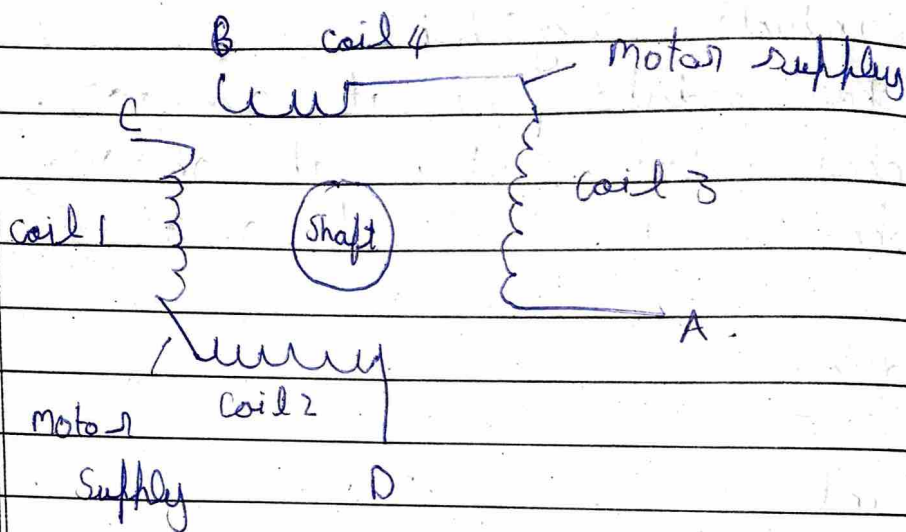 B coil 4
Motor supply
C
coil 3
coil 1
Shaft
A.
coil 2
Motor
Supply
D